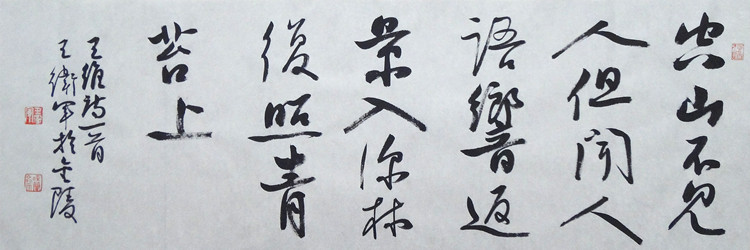 空山不見
人但聞人
語響返
景入深林
復照青
苔上
王維詩一首
王衛軍於金陵